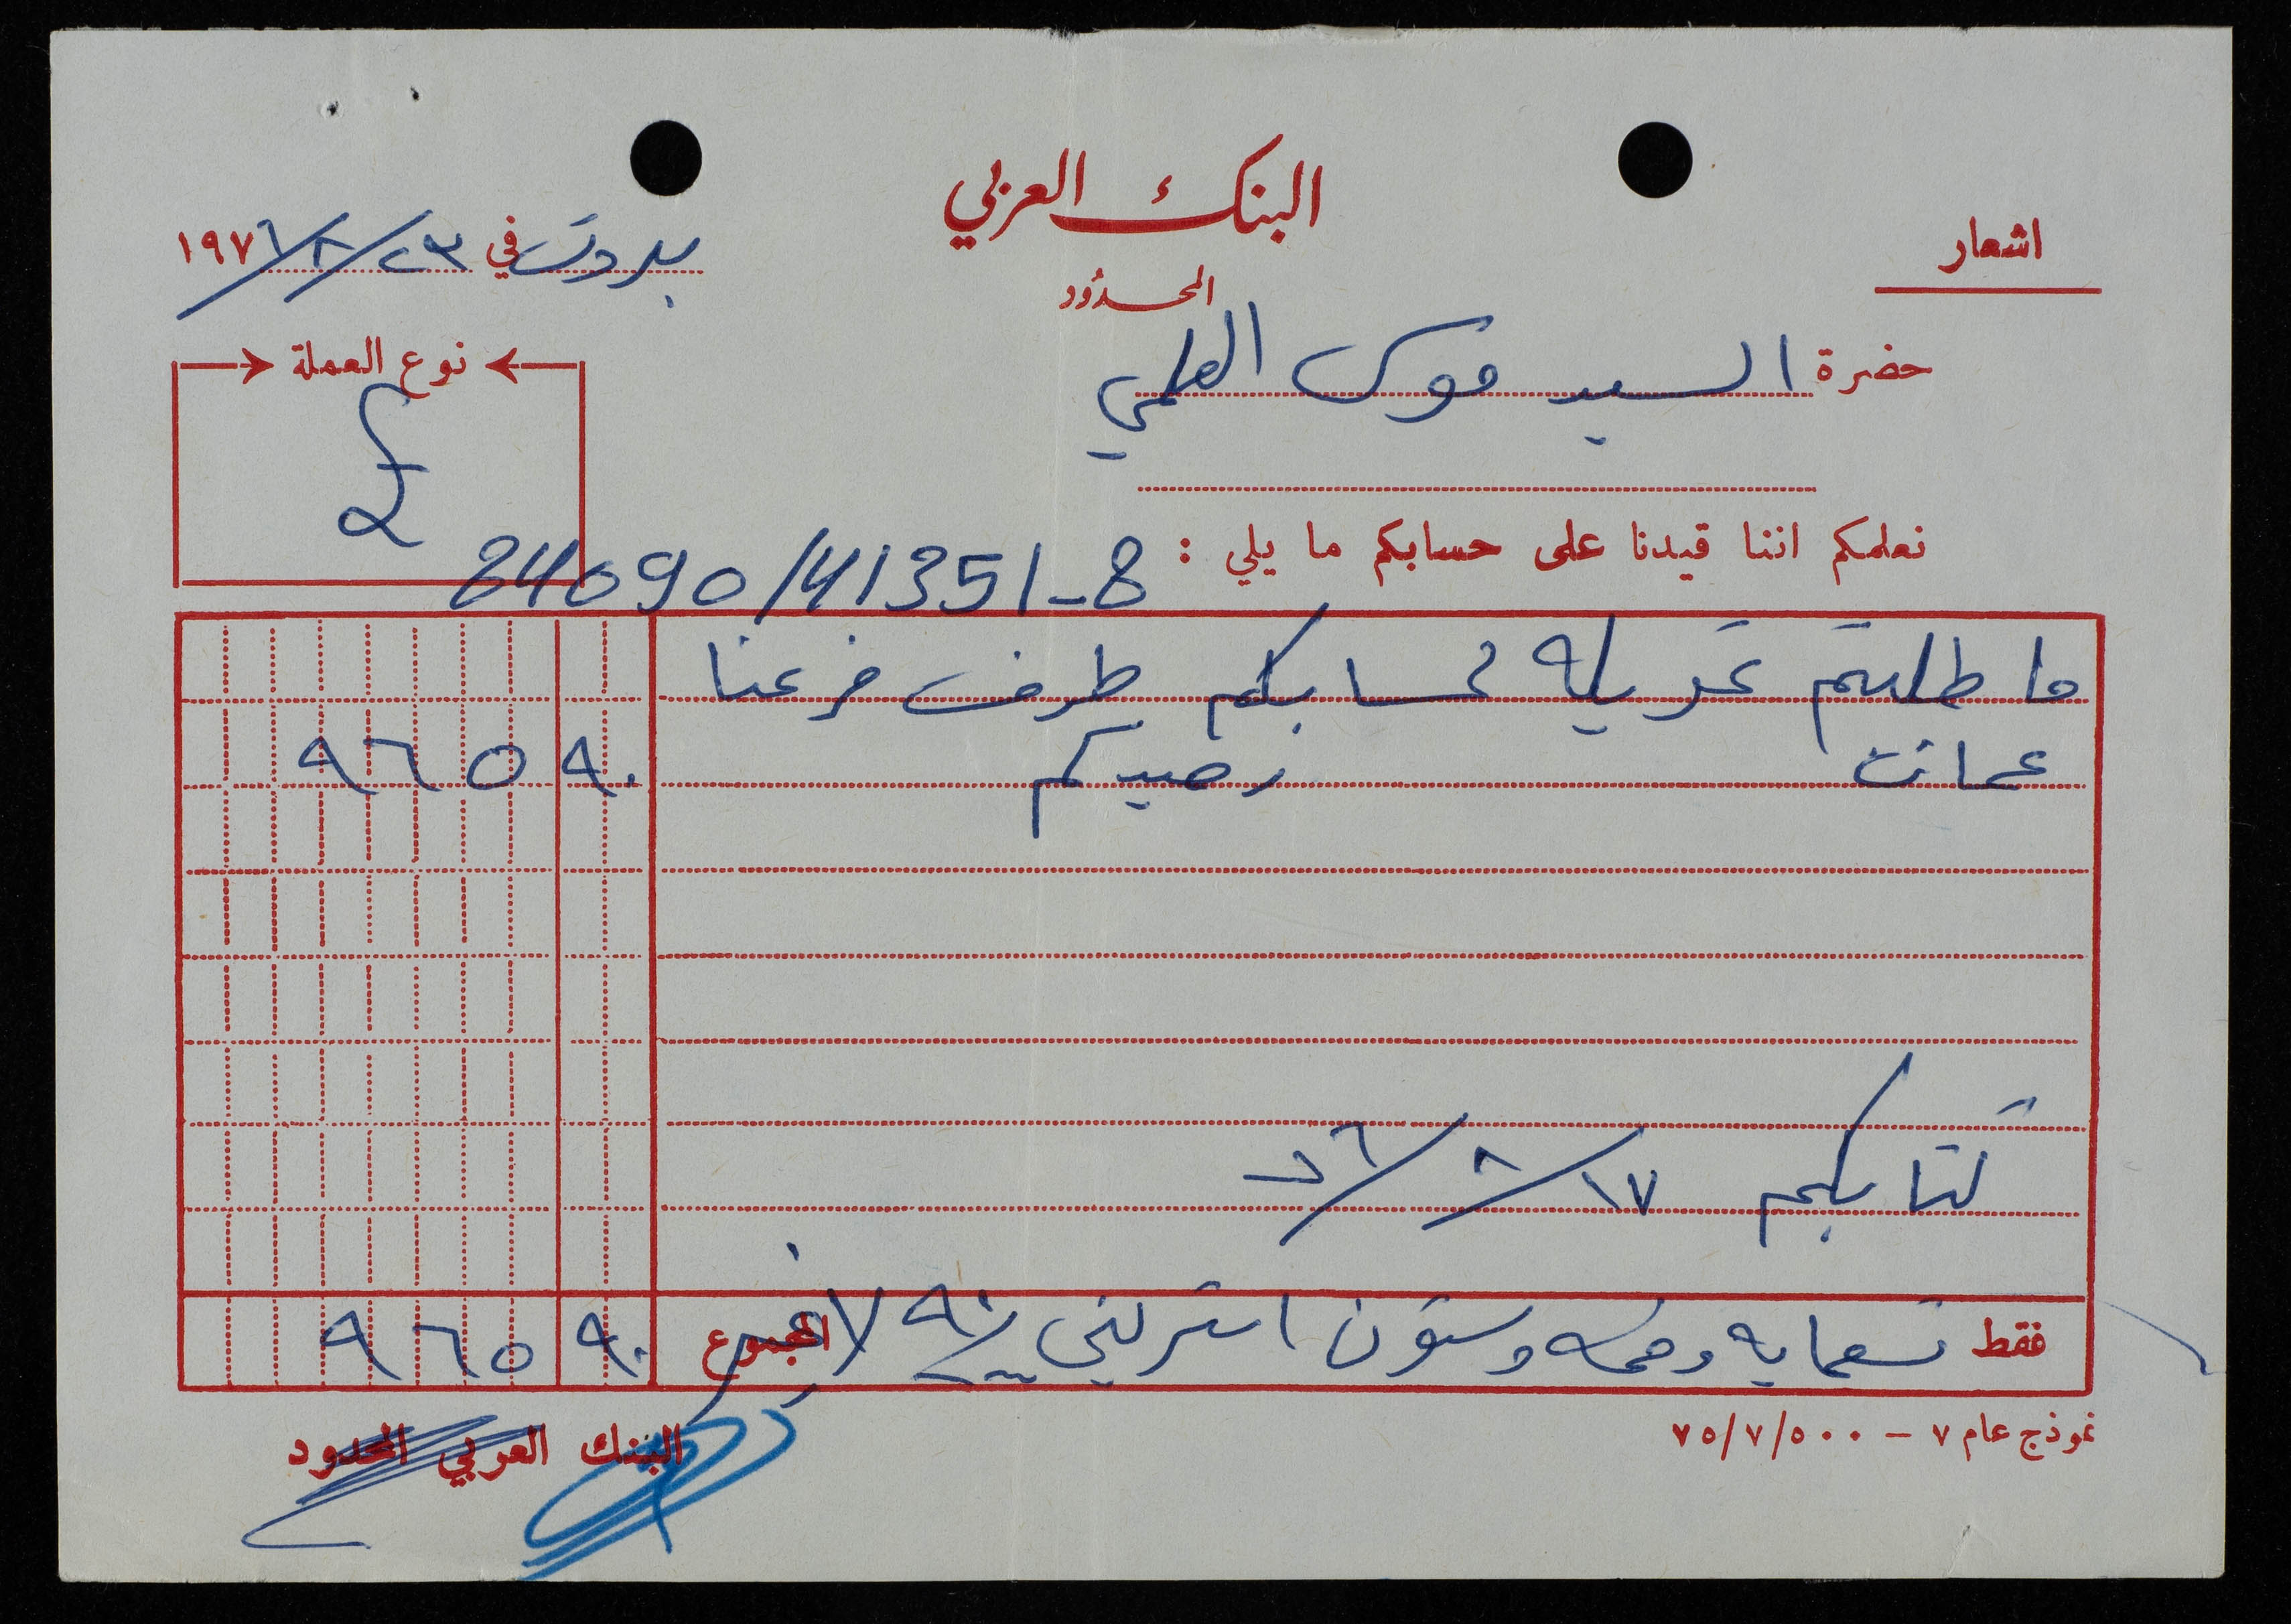 البنك العربي
المحدود
اشعار
بيروت في ٢٣/٨/١٩٧٦
حضرة السيد موسى العلمي
نوع العملة
£
نعلمكم اننا قيدنا على حسابكم ما يلي :
84090/41351-8
ما طلبتم تحويله لحسابكم طرف فرعنا
عمان رصيدكم ٩٦٥ ٩٠
كتابكم ١٧/٨/٧٦
فقط تسعماية وخمسة وستون استرليني ٩٠/١٠٠ لا غير المجموع ٩٦٥ ٩٠
نموذج عام ٧ - ٧٥/٧/٥٠٠
البنك العربي المحدود